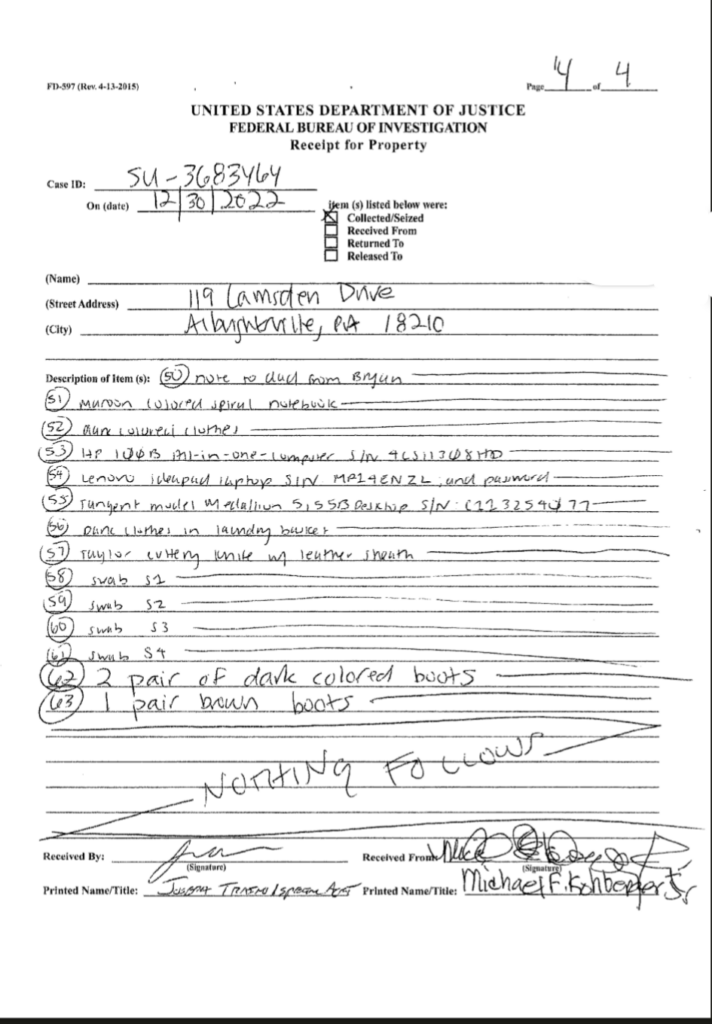 FD-597 (Rev. 4-13-2015)
Page 4 of 4
UNITED STATES DEPARTMENT OF JUSTICE
FEDERAL BUREAU OF INVESTIGATION
Receipt for Property
Case ID: SU-3683464
On (date) 12/30/2022
item (s) listed below were:
Collected/Seized
Received From
Returned To
Released To
(Name)
(Street Address) 119 Lamsden Drive
(City) Albrightsville, PA 18210
Description of Item (s): 50 note to dad from Bryan
51 maroon colored spiral notebook
52 Dark colored clothes
53 HP 100B All-in-one-computer S/N
54 Lenovo ideapad laptop S/N MP14ENZL, and password
55 Tangent model Medallion Desktop S/N
56 Dark clothes in laundry basket
57 Taylor cutlery knife w/ leather sheath
58 swab S1
59 swab S2
60 swab S3
61 swab S4
62 2 pair of dark colored boots
63 1 pair brown boots
NOTHING FOLLOWS
Received By:
Received From:
(Signature)
(Signature)
Printed Name/Title: Special Agt
Printed Name/Title: Michael F. Kohberger Jr